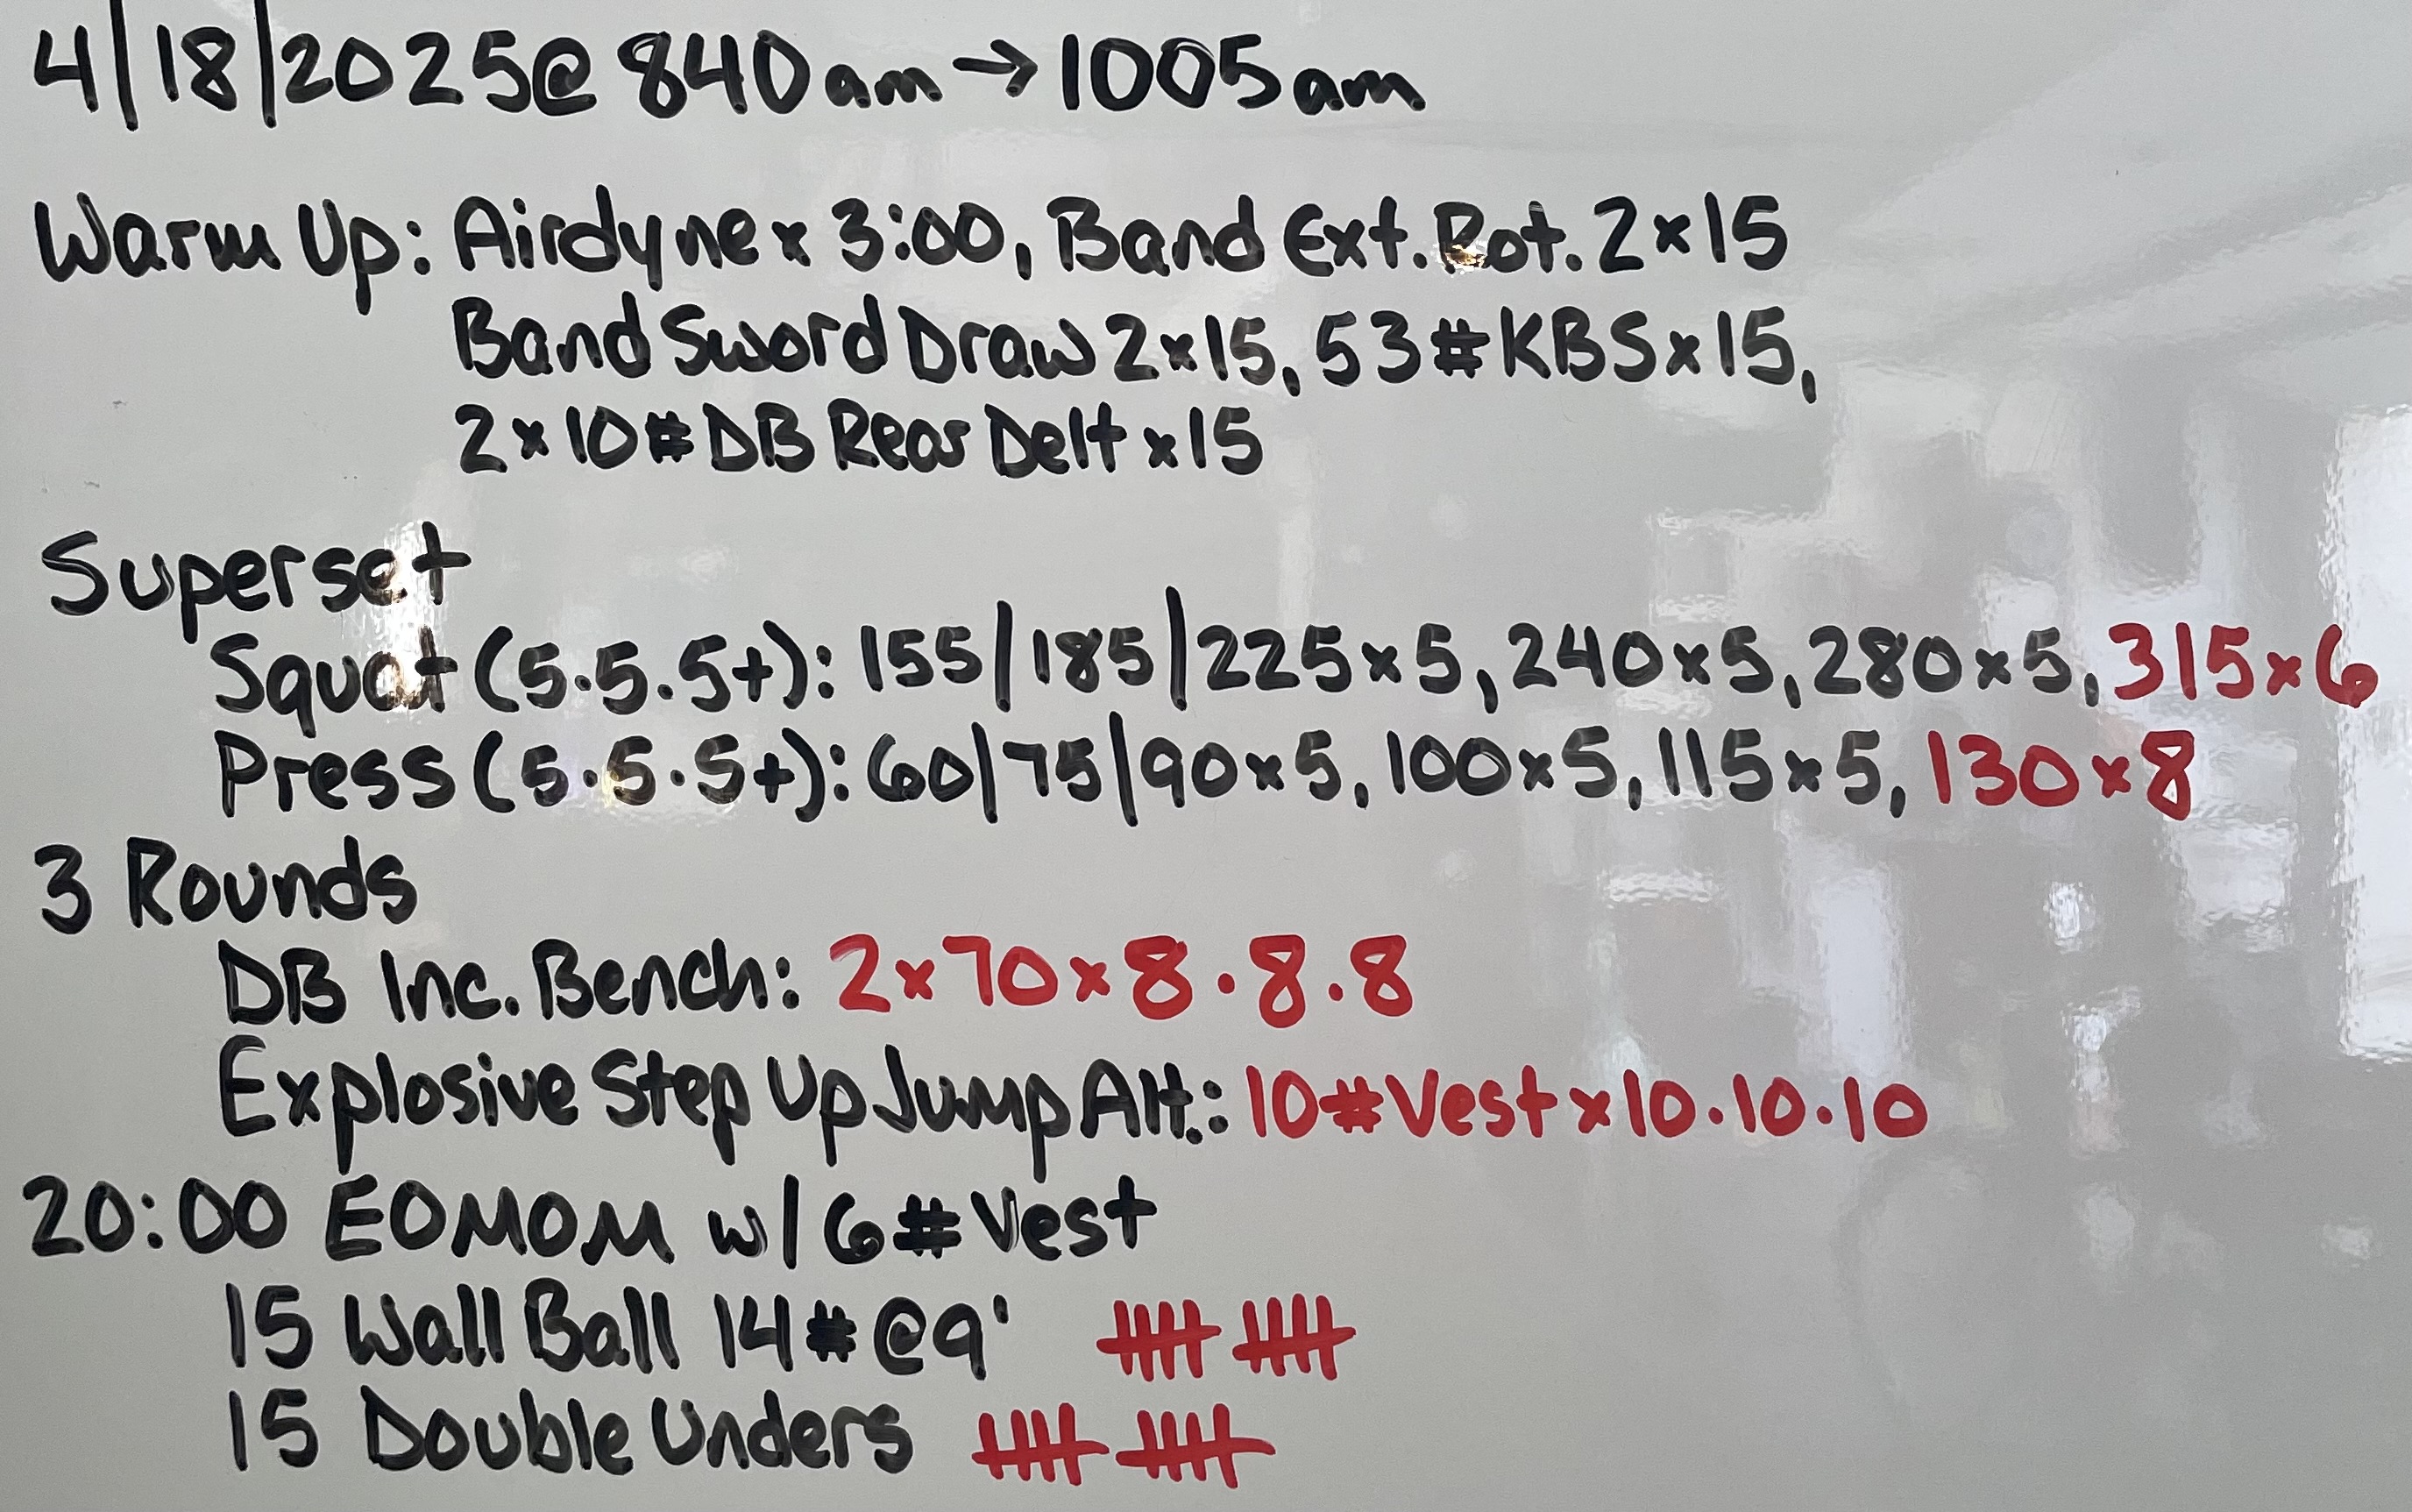 4/18/2025@ 840am→1005am
Warm Up: Airdyne x 3:00, Band Ext. Rot. 2x15
Band Sword Draw 2x15, 53#KBSx15,
2x10#DB Rear Delt x15
Superset
Squat (5·5·5+): 155/185/225x5, 240x5, 280x5, 315x6
Press (5·5·5+): 60/75/90x5, 100x5, 115x5, 130x8
3 Rounds
DB Inc. Bench: 2x70x8·8·8
Explosive Step Up Jump Alt.: 10#Vest x10·10·10
20:00 EOMOM w/ 6#Vest
15 Wall Ball 14#@9' 卌 卌
15 Double Unders 卌 卌